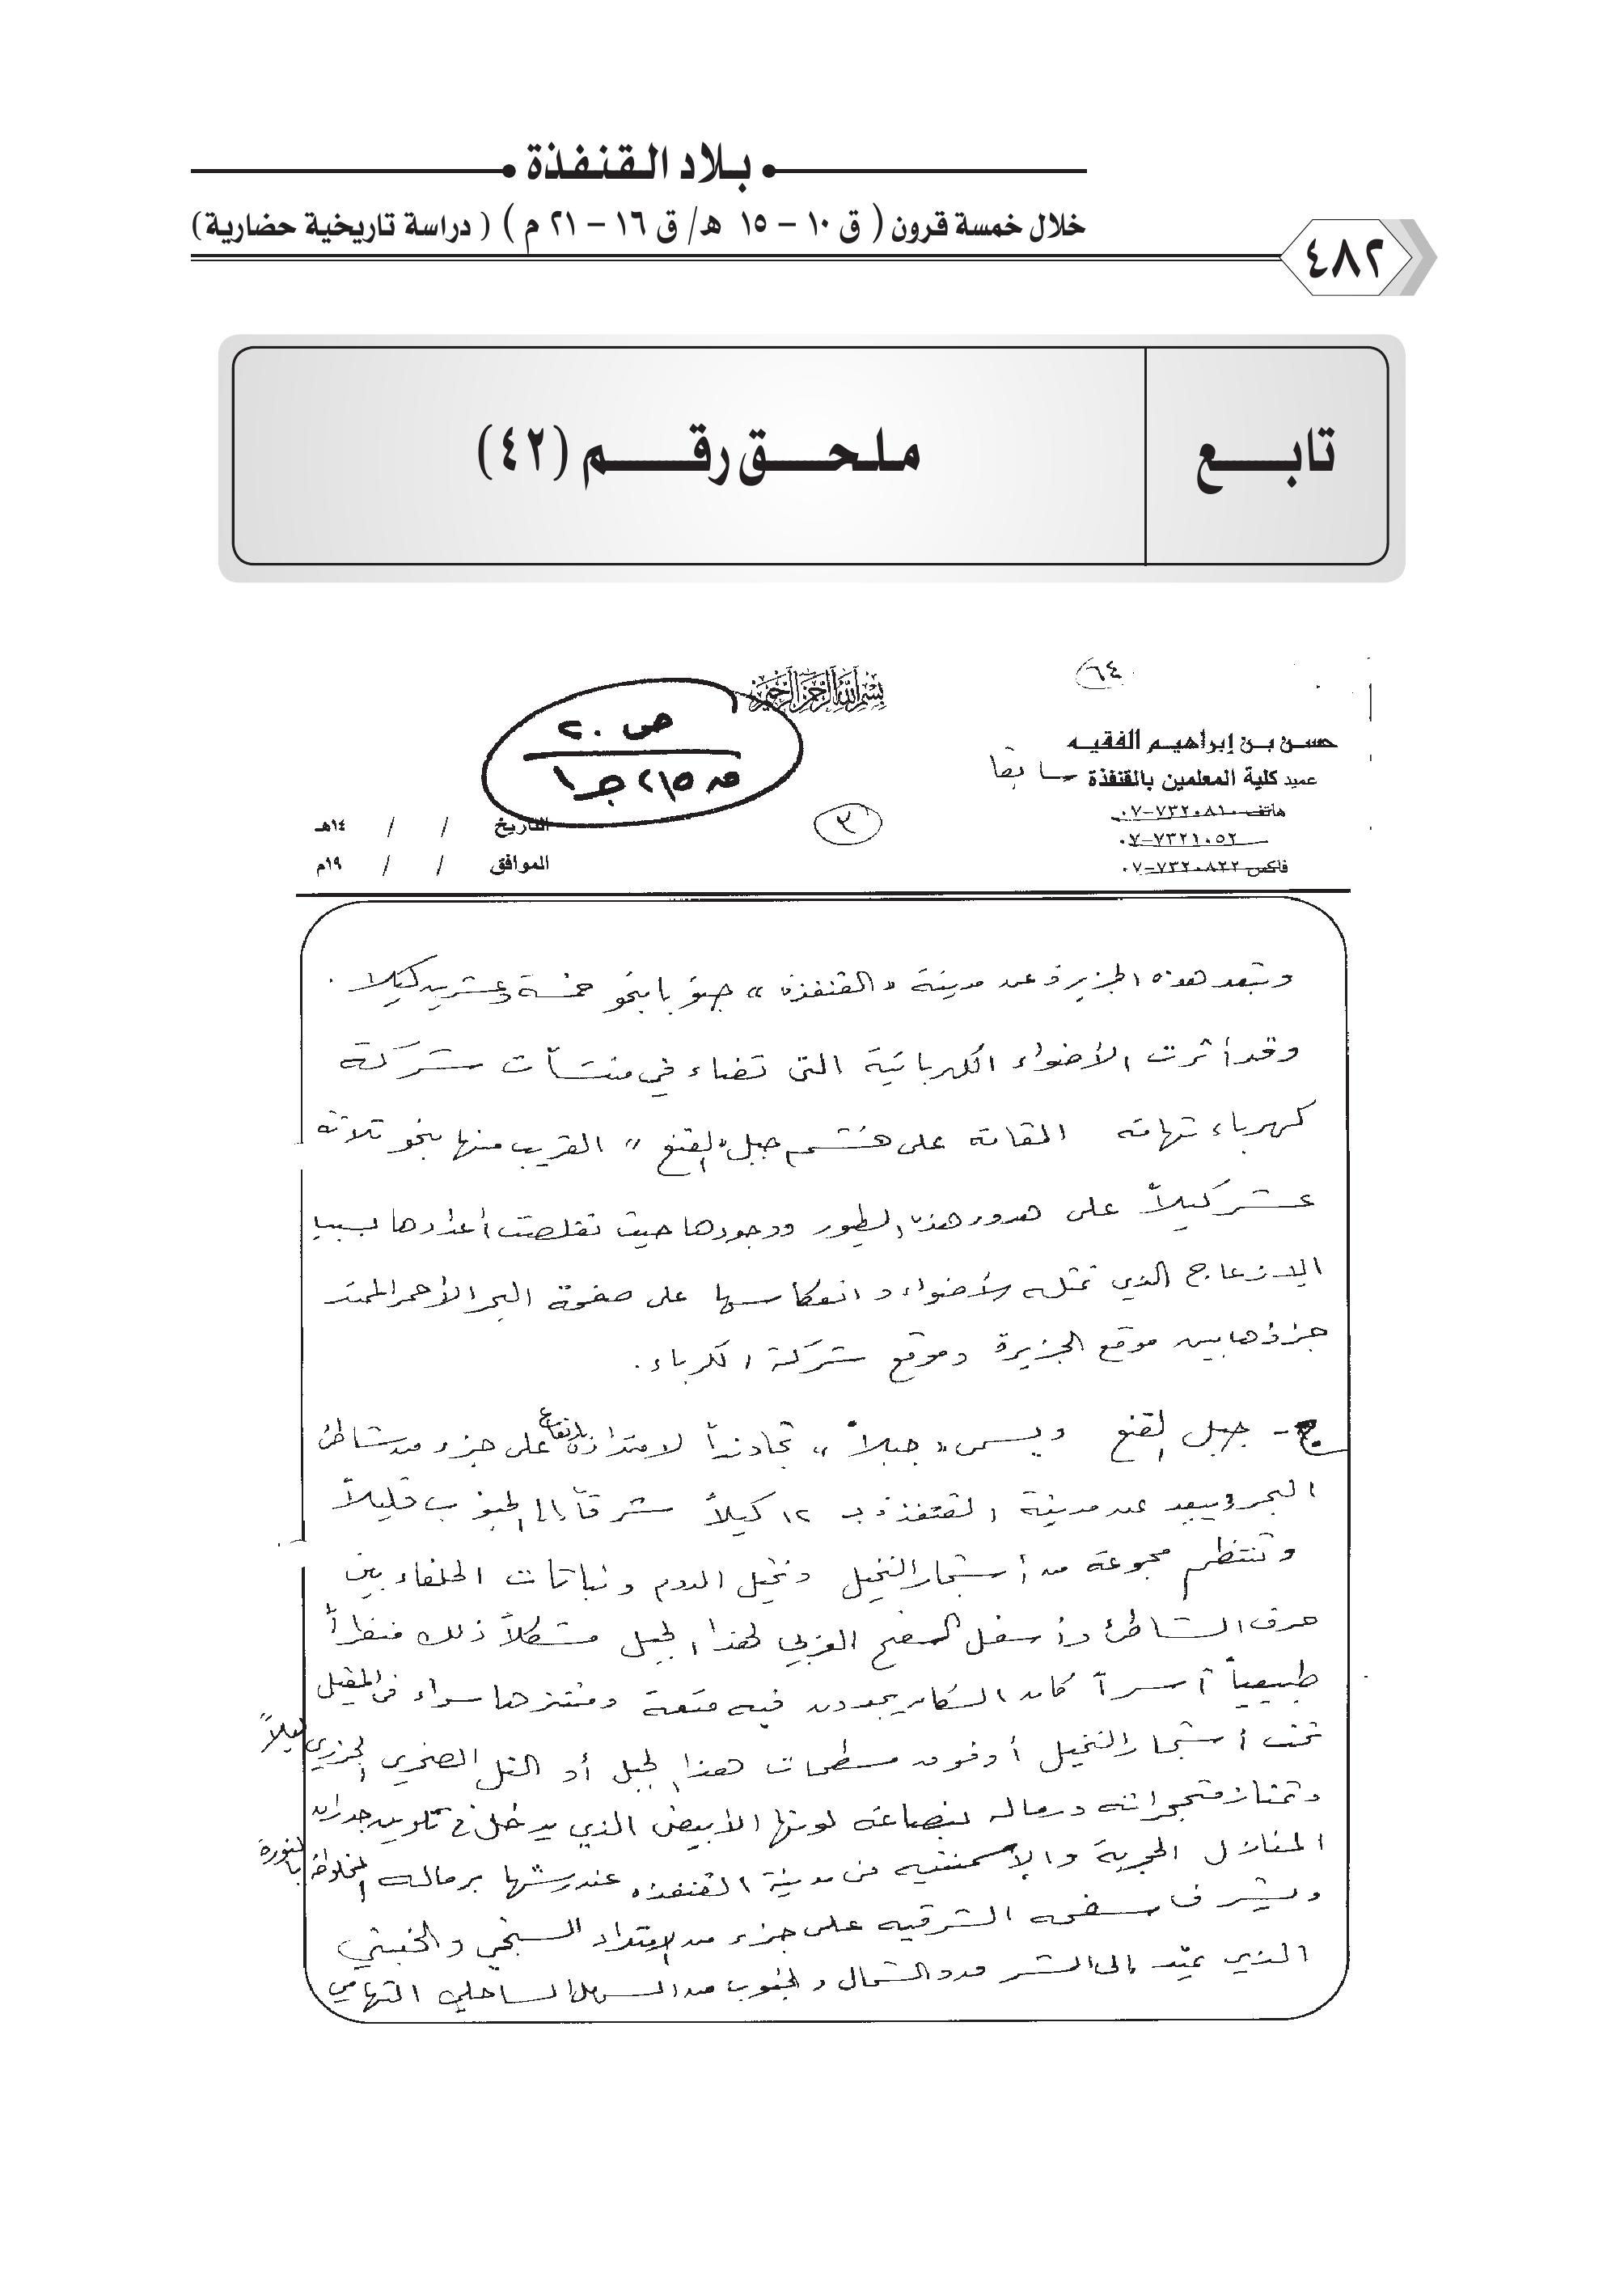 بلاد القنفذة
خلال خمسة قرون ( ق ١٠ – ١٥ هـ/ ق ١٦ – ٢١ م ) ( دراسة تاريخية حضارية)
٤٨٢
تابع
ملحق رقم (٤٢)
٦٤
بسم الله الرحمن الرحيم
ص ٢٠
حسن بن إبراهيم الفقيه
عميد كلية المعلمين بالقنفذة سابقا
هاتف ٧٣٢٠٨١٠-٠٧
٧٣٢١٠٥٢-٠٧
فاكس ٧٣٢٠٨٢٢-٠٧
٣
التاريخ / / ١٤هـ
الموافق / / ١٩م
وتبعد هذه الجزيرة عن مدينة «القنفذة» جنوبا بنحو خمسة وعشرين كيلا .
وقد أثرت الأضواء الكهربائية التي تضاء في منشآت شركة
كهرباء تهامة المقامة على هشم جبل «القنع» القريب منها بنحو ثلاثة
عشر كيلاً على هدور هذه الطيور ووجودها حيث تقلصت أعدادها بسبب
الازعاج الذي تمثله الأضواء وانعكاسها على صفحة البحر الأحمر الممتد
جزؤها بين موقع الجزيرة وموقع شركة الكهرباء .
ج- جبل القنع ويسمى «جبلاً» تجاوزاً لامتداده بارتفاع على جزء من شاطئ
البحر ويبعد عن مدينة القنفذة بـ ١٢ كيلاً شرقاً إلى الجنوب قليلاً
وتنتظم مجموعة من أشجار النخيل ونخيل الدوم ونباتات الحلفاء بين
حرف الشاطئ وأسفل السفح الغربي لهذا الجبل مشكلاً ذلك منظراً
طبيعياً آسراً كان السكان يجدون فيه متعة ومتنزها سواء في المقيل
تحت أشجار النخيل أو فوق مسطحات هذا الجبل أو التل الصخري الجزري ليلاً
وتمتاز متحجراته ورماله بنصاعة لونها الأبيض الذي يدخل في تلوين جدران
المنازل الحجرية والإسمنتيه في مدينة القنفذه عند رشها برماله المخلوطة بالنورة
ويشرف سفحه الشرقيه على جزء من الامتداد السبخي والخبتي
الذي يمتد إلى الشرق والشمال والجنوب من السهل الساحلي التهامي